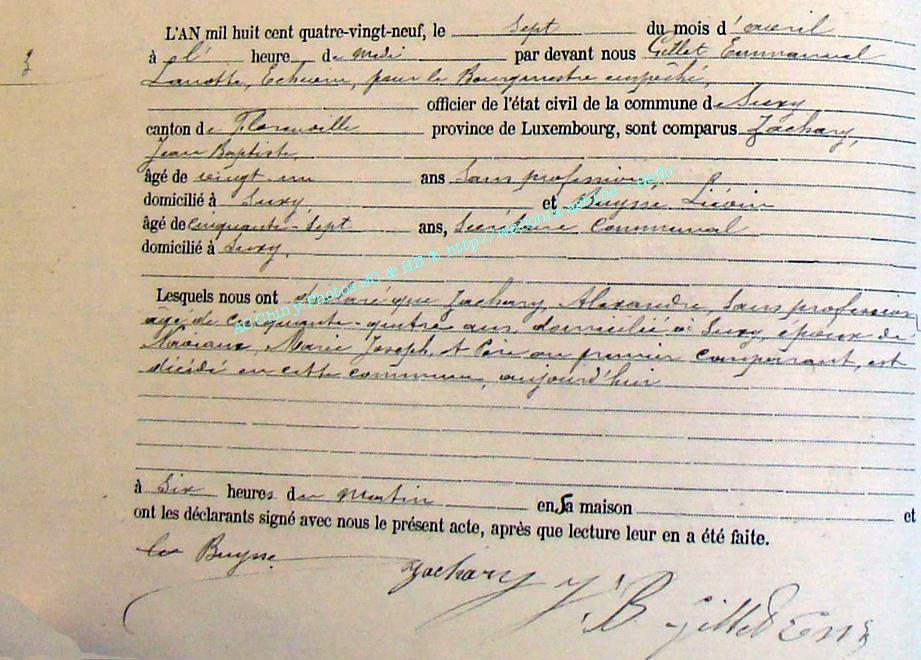 3
L'AN mil huit cent quatre-vingt-neuf, le sept du mois d'avril
à l' heure de midi par devant nous Gillet, Emmanuel
Lanotte, Echevin, pour le Bourgmestre empêché,
officier de l'état civil de la commune de Suxy
canton de Florenville province de Luxembourg, sont comparus Zachary,
Jean Baptiste,
âgé de vingt un ans Sans profession,
domicilié à Suxy et Buysse Liévin
âgé de cinquante-sept ans, Secrétaire Communal
domicilié à Suxy.
Lesquels nous ont déclaré que Zachary, Alexandre, Sans profession
âgé de cinquante-quatre ans domicilié à Suxy, époux de
Marie Joseph, et Père au premier comparant, est
décédé en cette commune, aujourd'hui
à Six heures du matin en sa maison et
ont les déclarants signé avec nous le présent acte, après que lecture leur en a été faite.
Buysse
Zachary J. B. Gillet Em
AC Chiny Photos JG & HB © http://wallonia-asbl.be